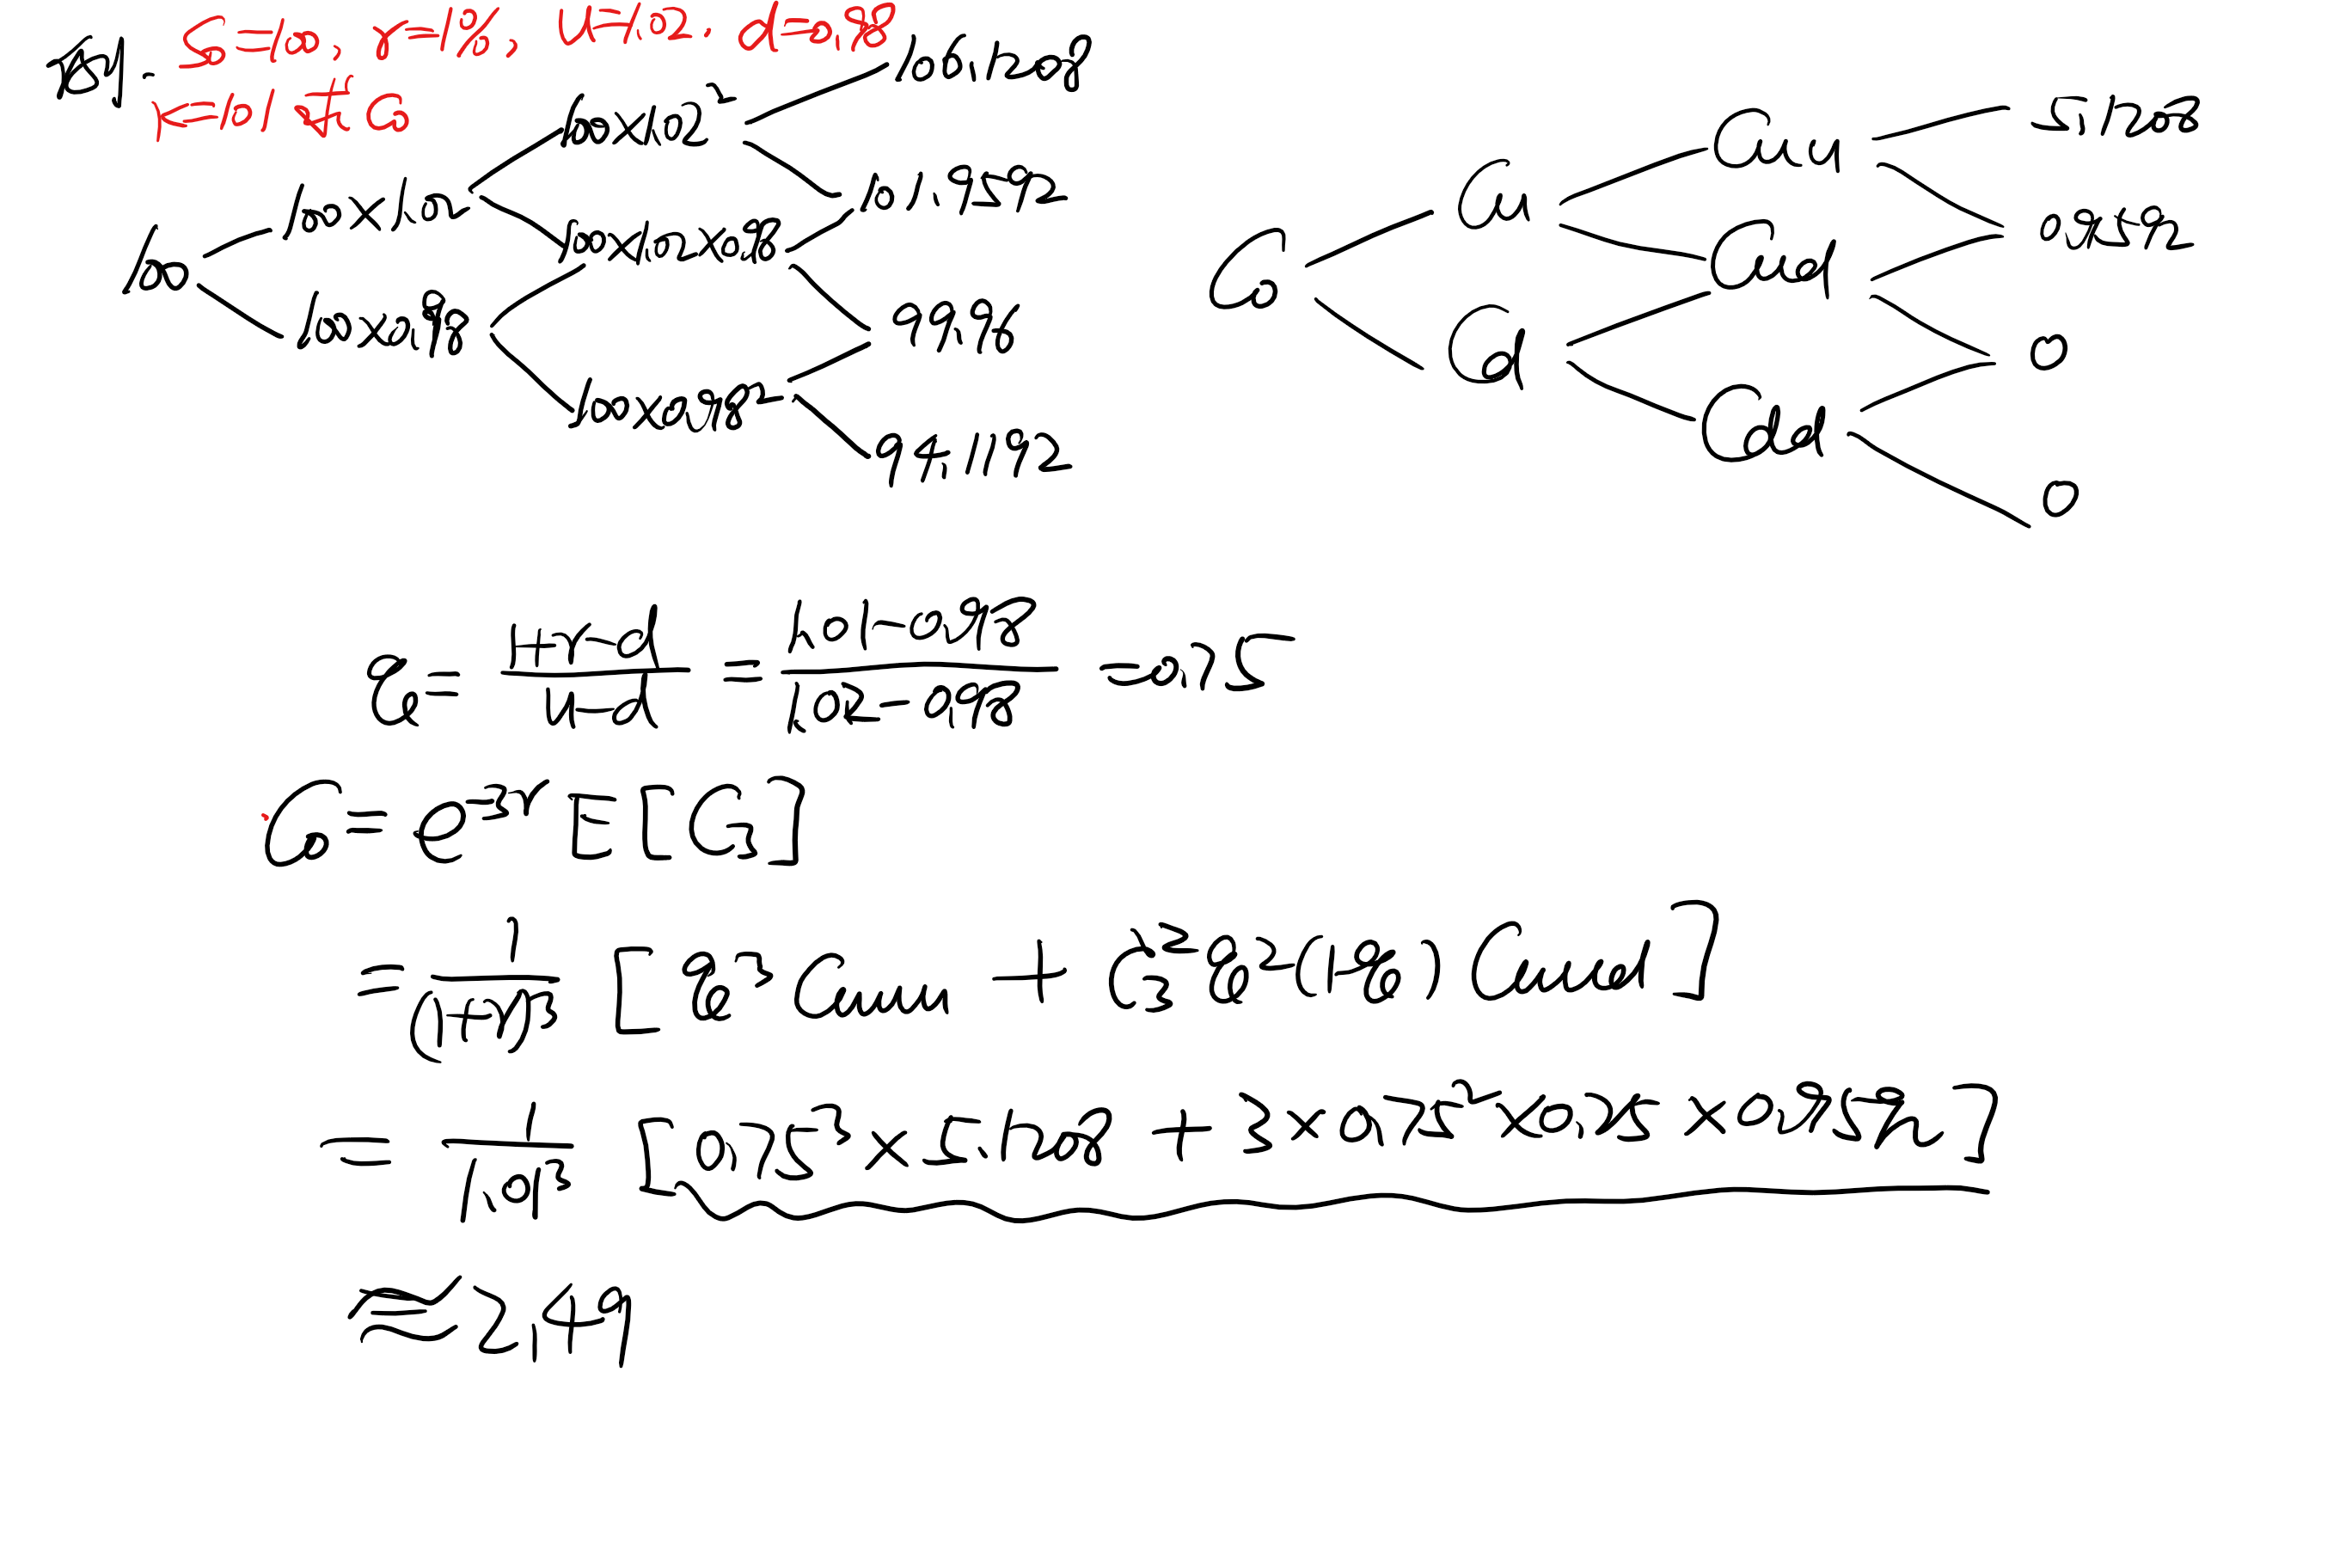 例. S=100, r=1%, U=1.02. d=0.98
K=101 求C₀
100
100×1.02
100×0.98
100×1.02²
100×1.02×0.98
100×0.98²
106.1208
101.9592
99.96
94.1192
C₀
Cu
Cd
Cuu
Cud
Cdd
5.1208
0.9592
0
0
q = (1+r-d)/(u-d) = (1.01-0.98)/(1.02-0.98) = 0.75
C₀ = e^{-3r} E[C₃]
= 1/(1+r)³ [q³ Cuuu + C₃² q² (1-q) Cuud]
= 1/1.01³ [0.75³ × 5.1208 + 3 × 0.75² × 0.25 × 0.9592]
≈ 2.49